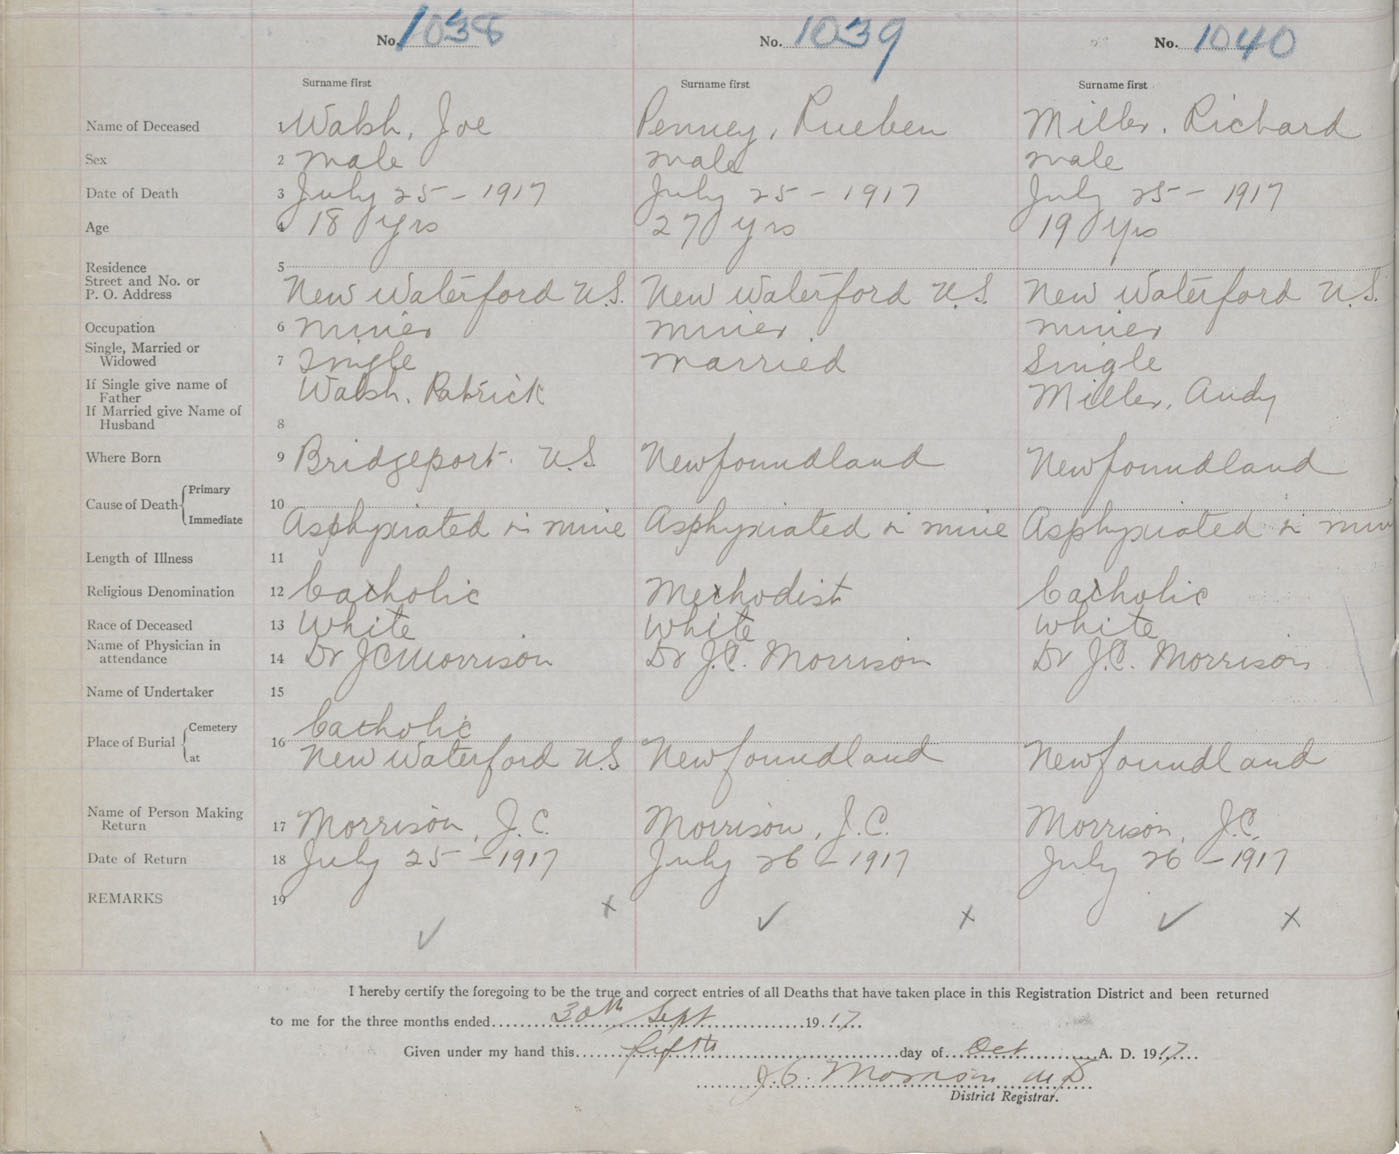 No. 1038 No. 1039 No. 1040
Surname first Surname first Surname first
Name of Deceased 1 Walsh, Joe Penney, Rueben Miller, Richard
Sex 2 male male male
Date of Death 3 July 25 - 1917 July 25 - 1917 July 25 - 1917
Age 4 18 yrs 27 yrs 19 yrs
Residence 5
Street and No. or
P. O. Address New Waterford N.S. New Waterford N.S. New Waterford N.S.
Occupation 6 miner miner miner
Single, Married or
Widowed 7 Single married Single
If Single give name of
Father Walsh, Patrick Miller, Andy
If Married give Name of
Husband 8
Where Born 9 Bridgeport. N.S. Newfoundland Newfoundland
Cause of Death Primary 10
Immediate Asphyxiated in mine Asphyxiated in mine Asphyxiated in mine
Length of Illness 11
Religious Denomination 12 Catholic Methodist Catholic
Race of Deceased 13 White White White
Name of Physician in
attendance 14 Dr J C Morrison Dr J.C. Morrison Dr J.C. Morrison
Name of Undertaker 15
Place of Burial Cemetery 16 Catholic
at New Waterford N.S Newfoundland Newfoundland
Name of Person Making
Return 17 Morrison, J.C. Morrison, J.C. Morrison, J.C.
Date of Return 18 July 25 - 1917 July 26 - 1917 July 26 - 1917
REMARKS 19
✓ x ✓ x ✓ x
I hereby certify the foregoing to be the true and correct entries of all Deaths that have taken place in this Registration District and been returned
to me for the three months ended 30th Sept 1917
Given under my hand this fifth day of Oct A. D. 1917
J.C. Morrison M D
District Registrar.